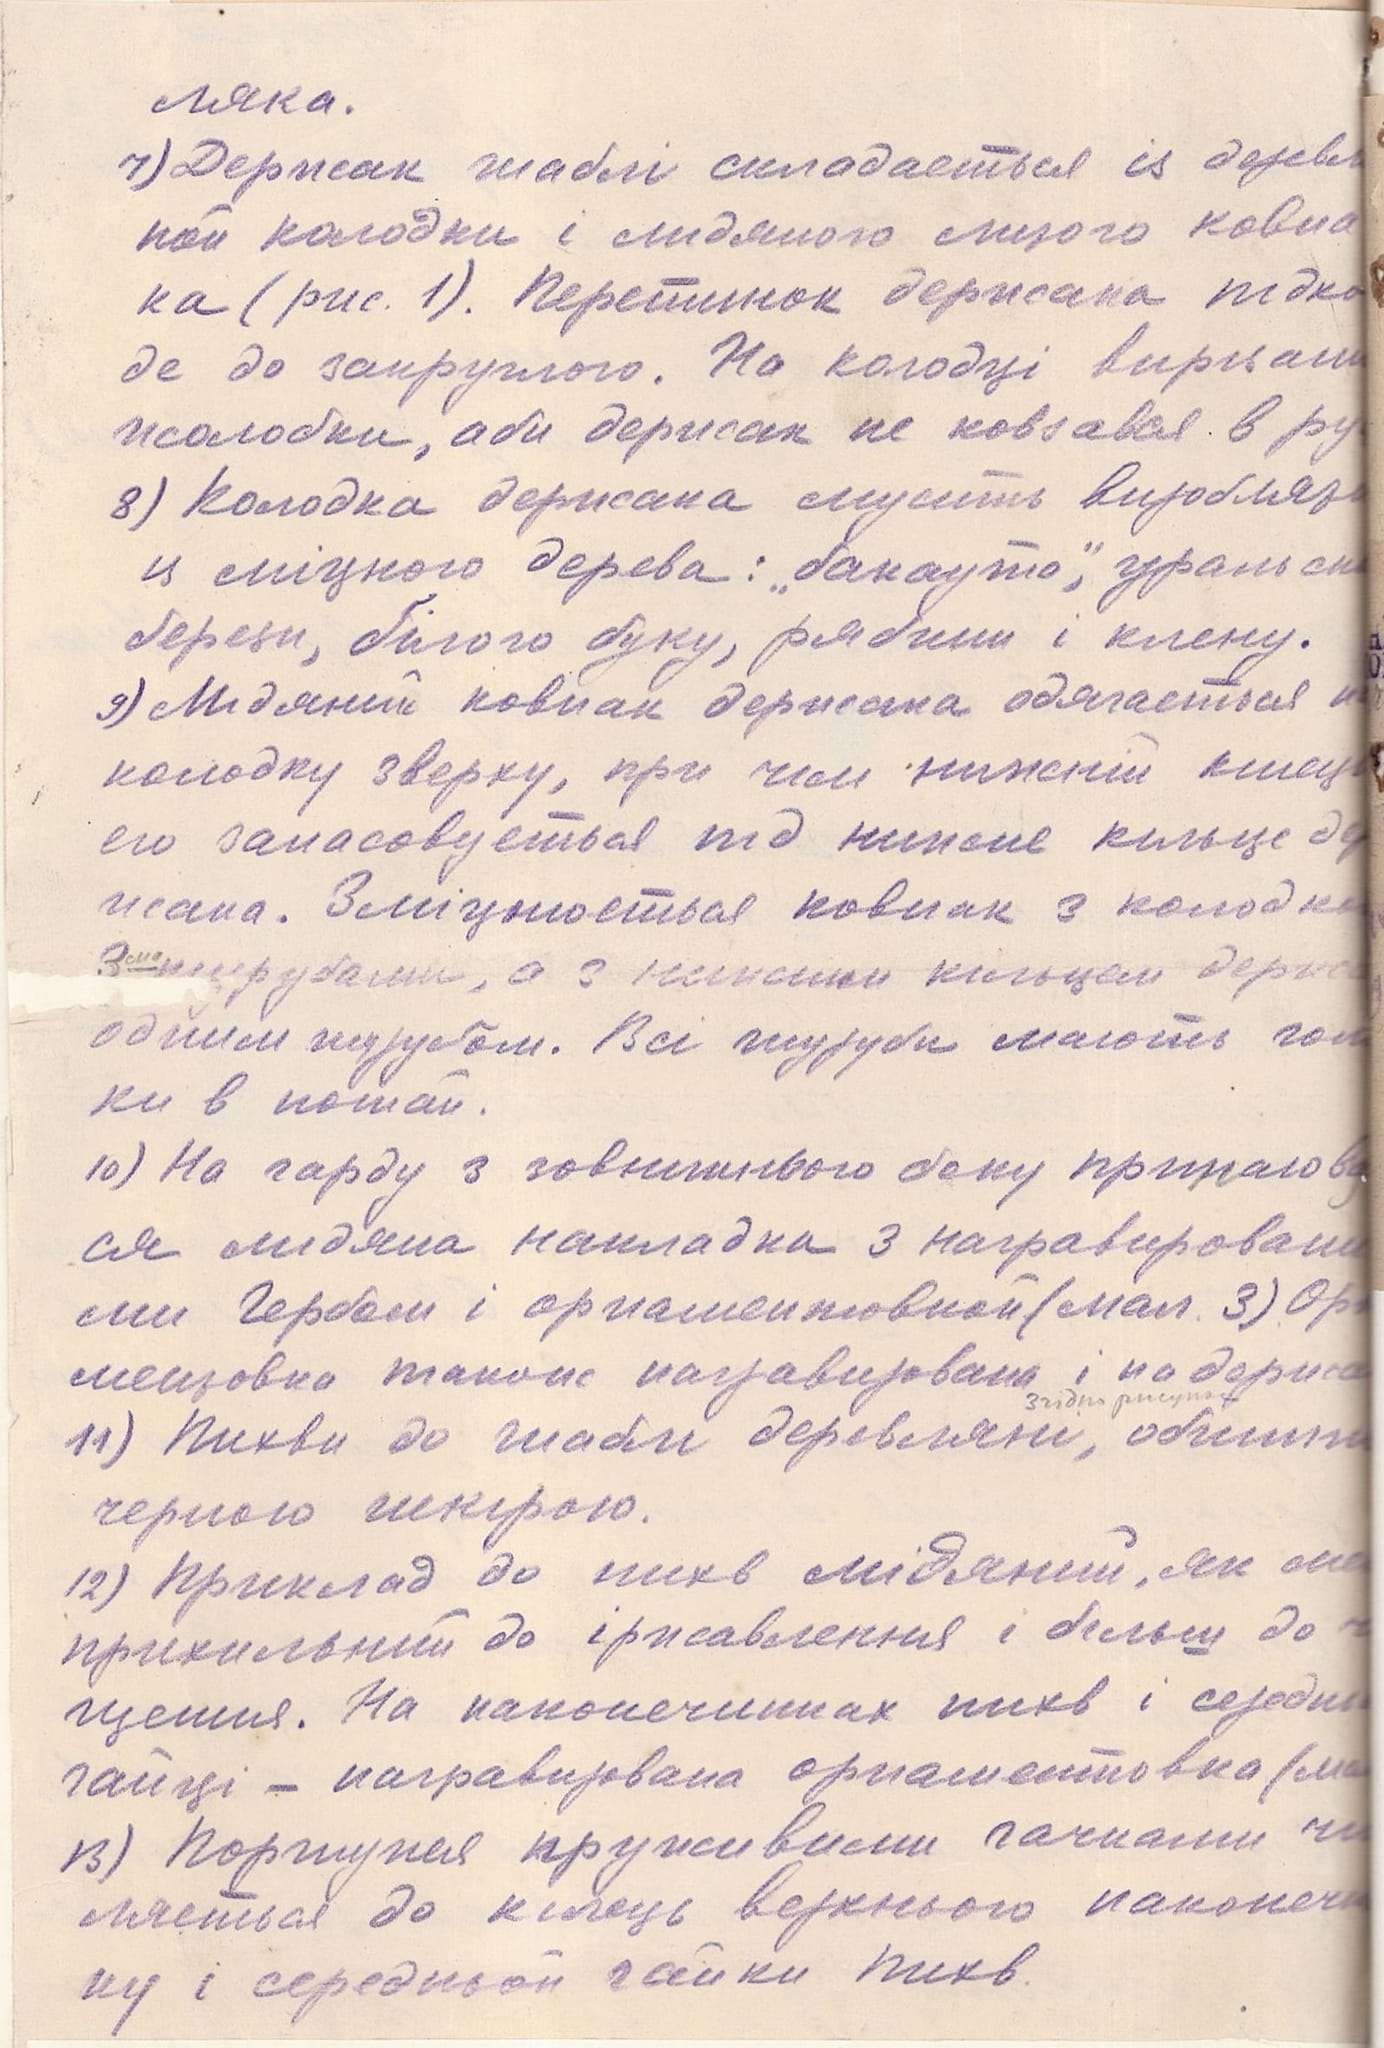 ляка.
7) Держак шаблі складається із деревл
ной колодки і мідяного литого ковпа
ка (рис. 1). Перетинок держака підхо
де до закруглого. На колодці вирізані
жолобки, аби держак не ковзався в ру
8) Колодка держака мусить вироблят
із міцного дерева: „бакаута", уральсько
берези, білого буку, рябини і клену.
9) Мідяний ковпак держака одягається на
колодку зверху, при чім нижній кінець
его запасовується під нижне кільце дер
жака. Зміцнюється ковпак з колодко
3ма шурубами, а з нижнім кільцем держа
одним шурубом. Всі шуруби мають голо
ки в потай.
10) На гарду з зовнішнього боку припаюву
ся мідяна накладка з награвировани
ми Гербом і орнаментовкой (мал. 3) Орн
ментовка також награвирована і на держа
згідно рисунок
11) Пихви до шаблі деревляні, обшити
черною шкірою.
12) Приклад до пихв мідяний, як мен
прихильний до іржавлення і більш до ч
щення. На наконечниках пихв і середні
гайці – награвирована орнаментовка (мал
13) Портупея пруживими гачками чі
ляється до кілець верхнього наконечн
ку і середньой гайки пихв.